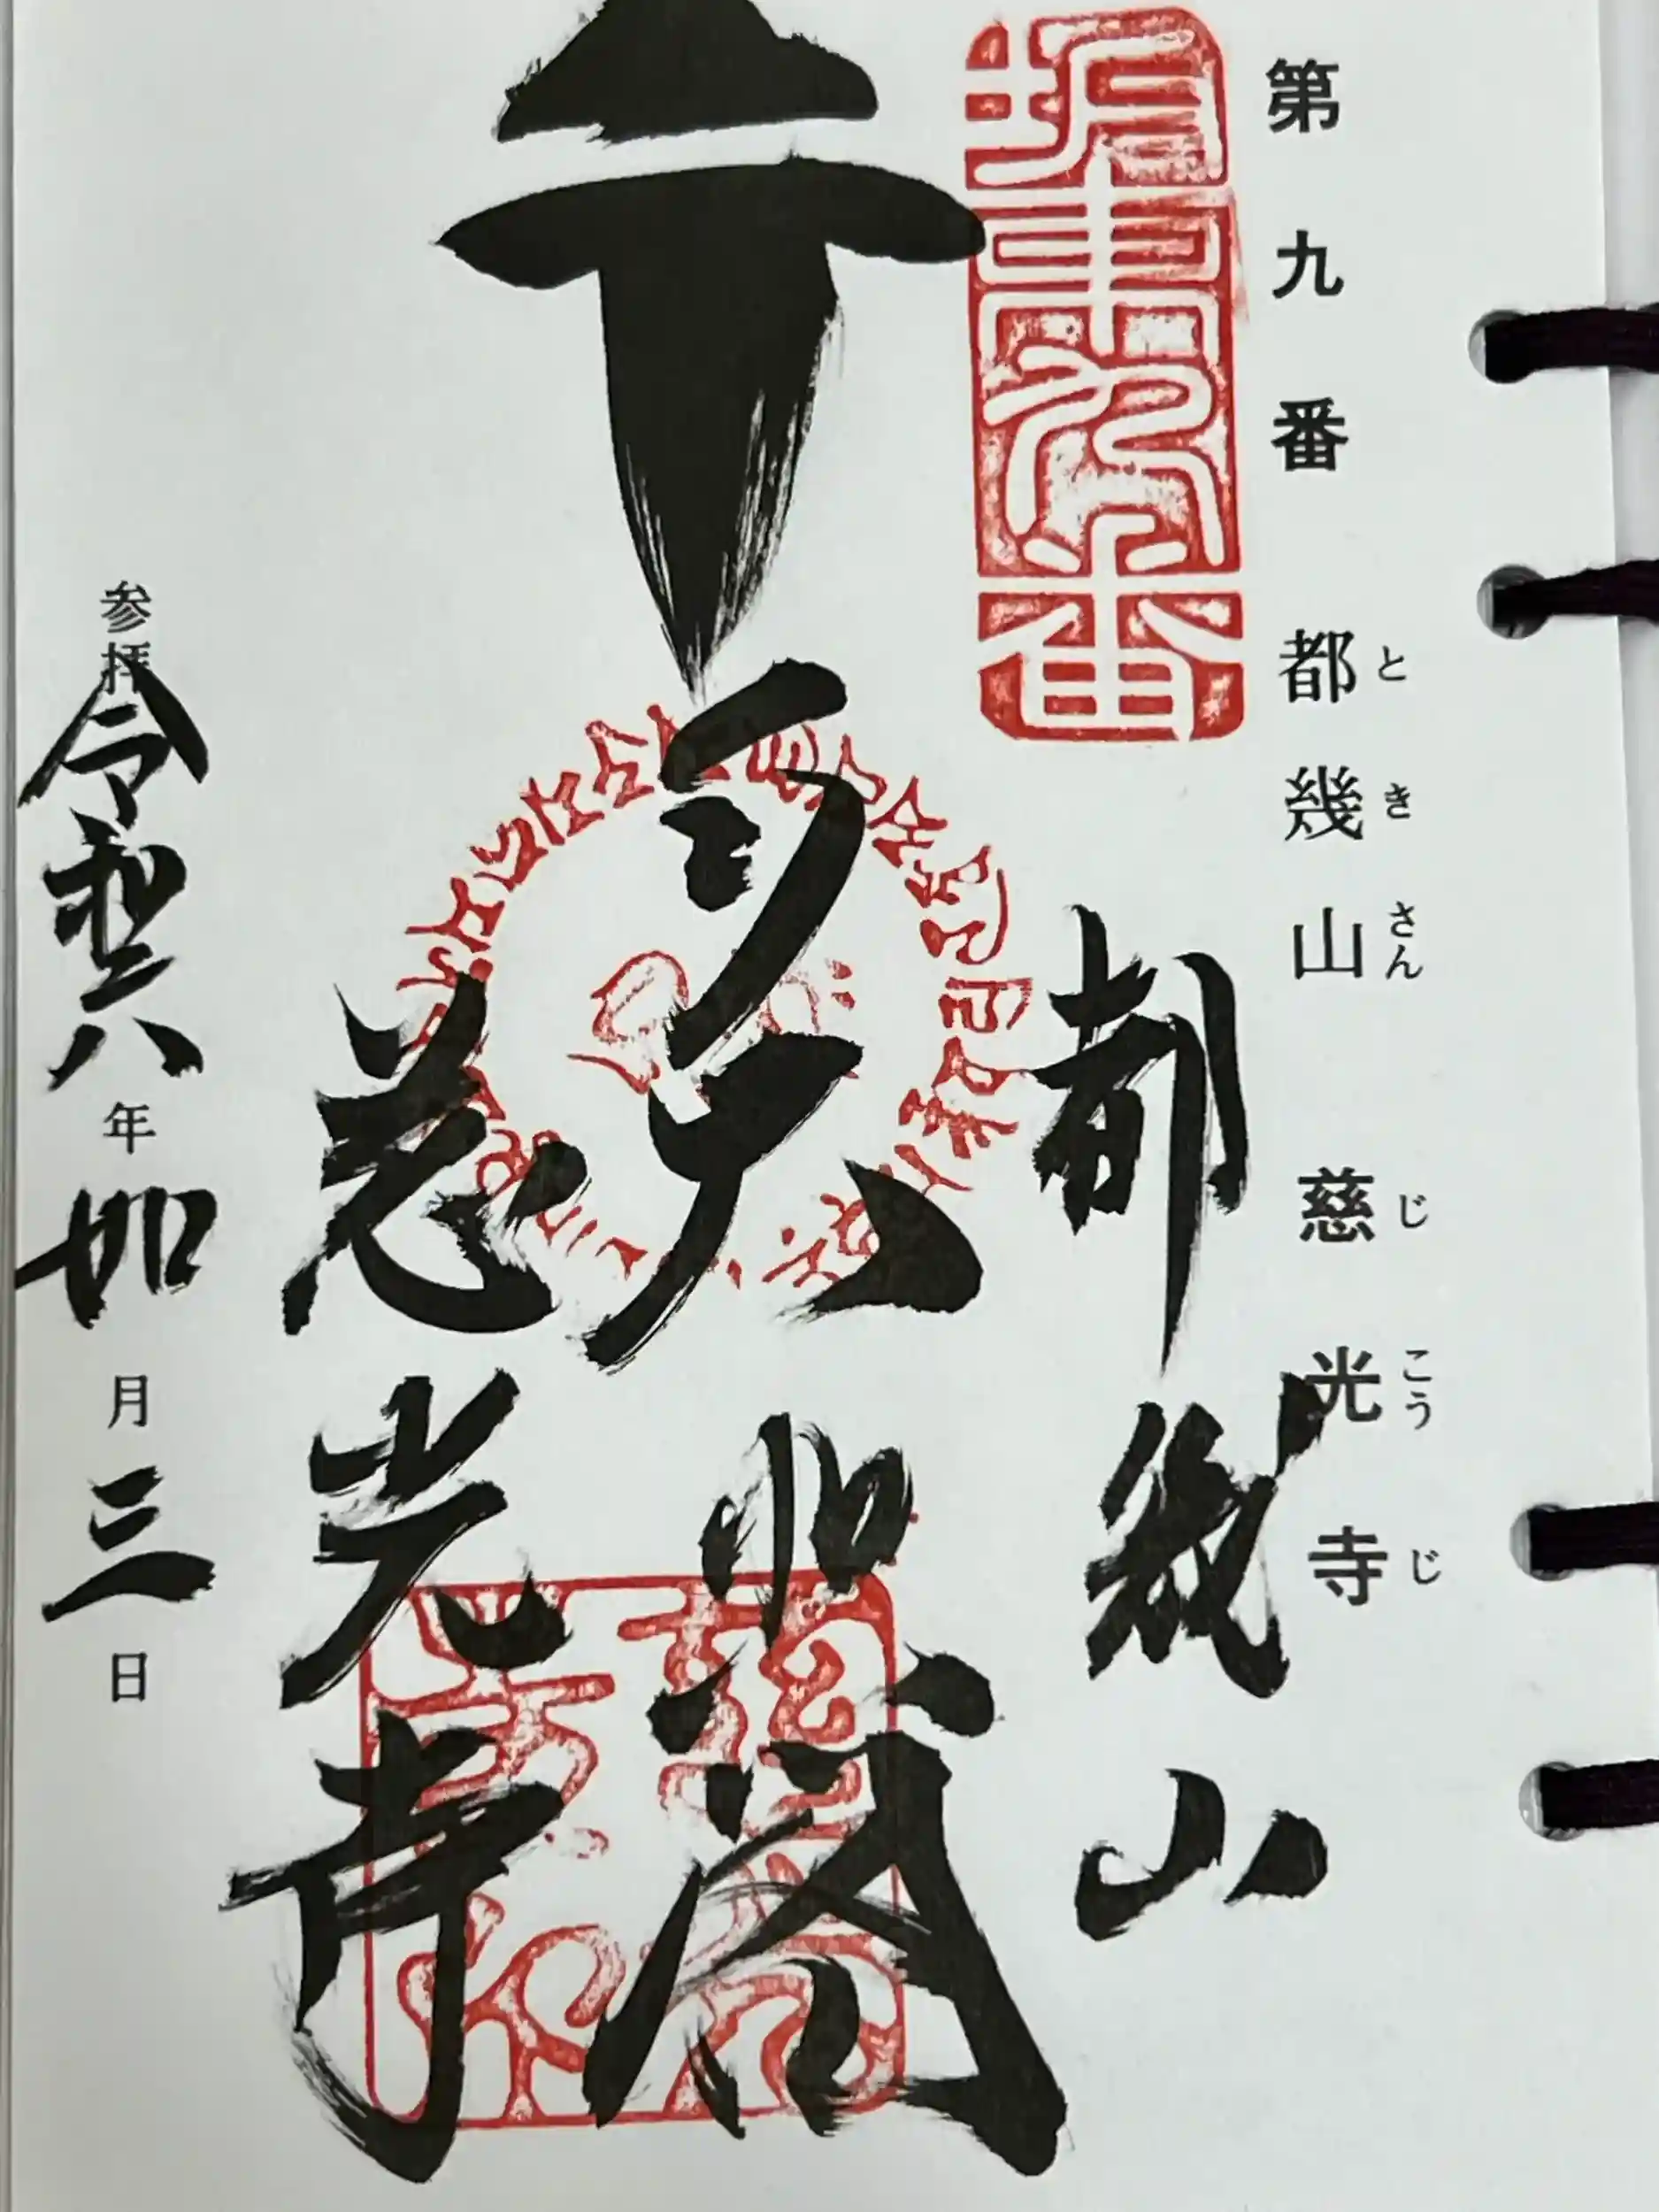 第九番 都幾山 慈光寺
ときさん じこうじ
坂東九番
都幾山
大悲閣
慈光寺
参拝 令和六年如月三日